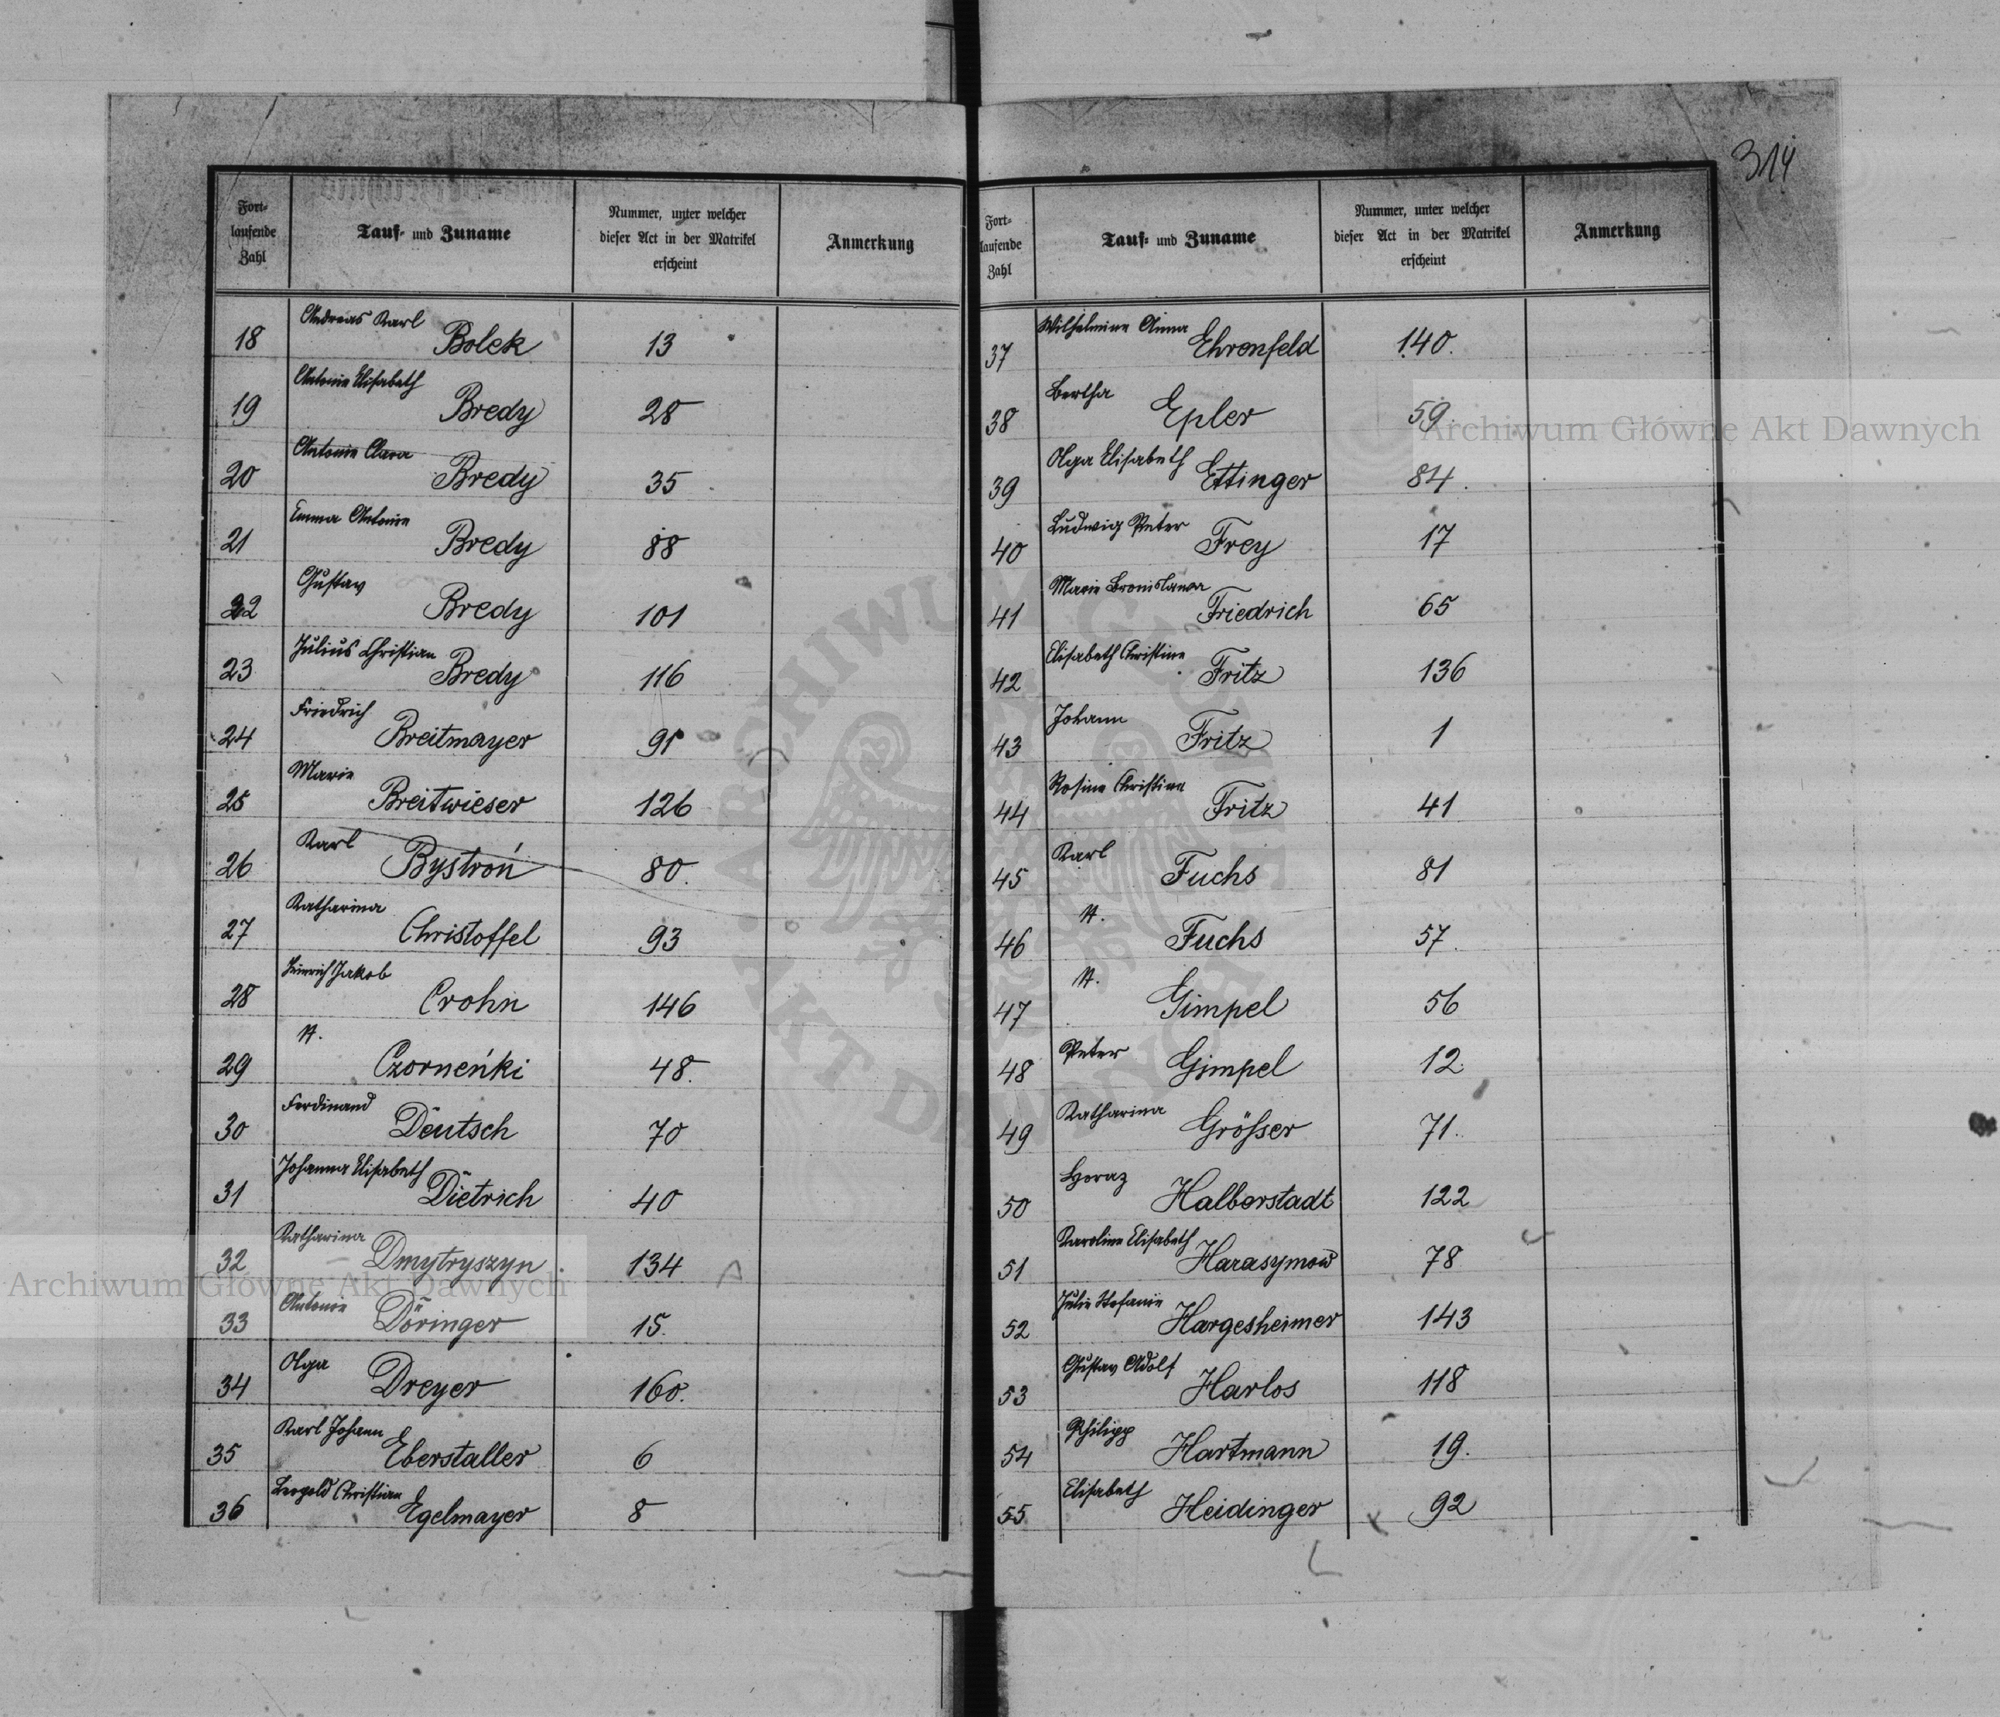 314
Fort-
laufende
Zahl
Tauf- und Zuname
Nummer, unter welcher
dieser Act in der Matrikel
erscheint
Anmerkung
18 Andreas Karl Bolek 13
19 Antonie Elisabeth Bredy 28
20 Antonie Clara Bredy 35
21 Emma Antonie Bredy 88
22 Gustav Bredy 101
23 Julius Christian Bredy 116
24 Friedrich Breitmayer 91
25 Marie Breitwieser 126
26 Karl Bystroń 80.
27 Katharina Christoffel 93
28 Heinrich Jakob Crohn 146
29 N. Czorneńki 48.
30 Ferdinand Deutsch 70
31 Johanna Elisabeth Dietrich 40
32 Katharina Dmytryszyn 134
33 Antonie Döringer 15.
34 Olga Dreyer 160.
35 Karl Johann Eberstaller 6
36 Leopold Christian Egelmayer 8
Fort-
laufende
Zahl
Tauf- und Zuname
Nummer, unter welcher
dieser Act in der Matrikel
erscheint
Anmerkung
37 Wilhelmine Anna Ehrenfeld 140.
38 Bertha Epler 59.
39 Olga Elisabeth Ettinger 84.
40 Ludwig Peter Frey 17
41 Marie Bronislawa Friedrich 65
42 Elisabeth Christine Fritz 136
43 Johann Fritz 1
44 Rosina Christina Fritz 41
45 Karl Fuchs 81
46 N. Fuchs 57.
47 N. Gimpel 56
48 Peter Gimpel 12.
49 Katharina Größer 71.
50 Horaz Halberstadt 122
51 Karoline Elisabeth Harasymow 78
52 Julie Stefanie Hargesheimer 143
53 Gustav Adolf Harlos 118
54 Philipp Hartmann 19.
55 Elisabeth Heidinger 92
Archiwum Główne Akt Dawnych
Archiwum Główne Akt Dawnych
ARCHIWUM GŁÓWNE
AKT DAWNYCH